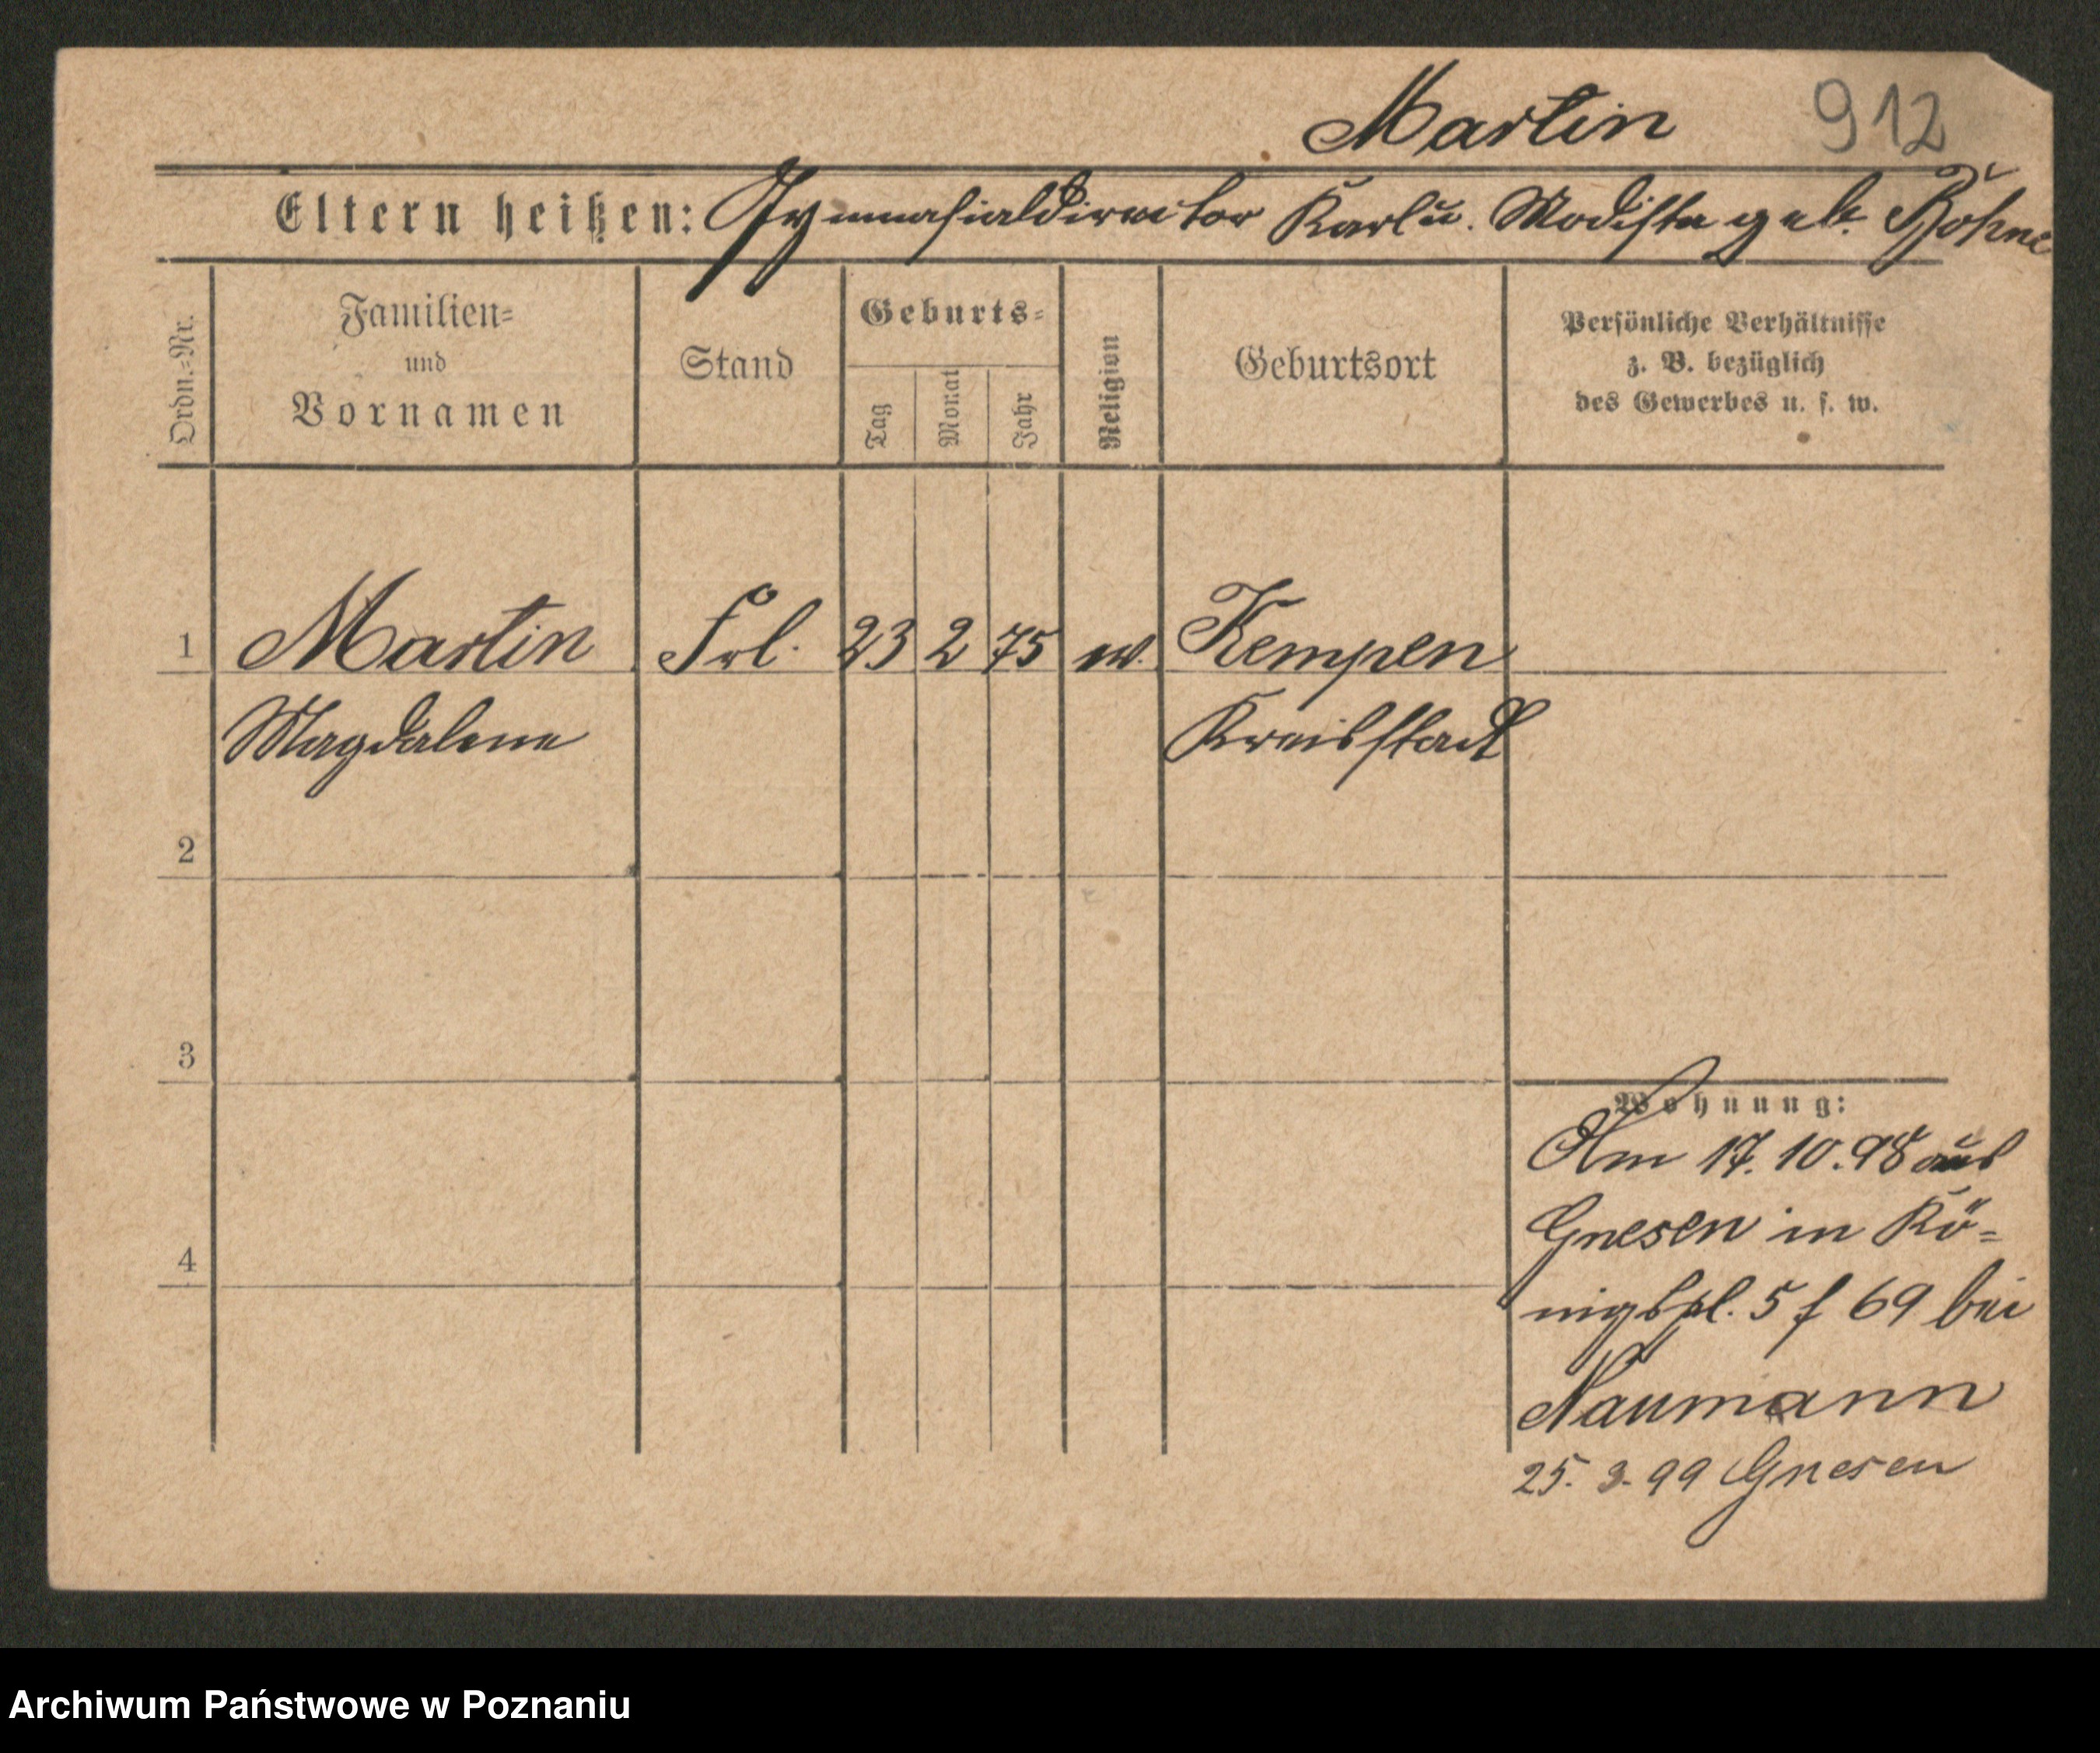 Martin 912
Eltern heißen: Gymnasialdirector Karl u. Modista geb. Böhne
Ordn.=Nr.
Familien=
und
Vornamen
Stand
Geburts=
Tag
Monat
Jahr
Religion
Geburtsort
Persönliche Verhältnisse
z. B. bezüglich
des Gewerbes u. s. w.
1 Martin Frl. 23 2 75 ev. Kempen
Magdalene Kreisstadt
2
3
Wohnung:
Am 17.10.98 aus
4 Gnesen in Kö=
nigspl. 5 f 69 bei
Naumann
25. 3. 99 Gnesen
Archiwum Państwowe w Poznaniu